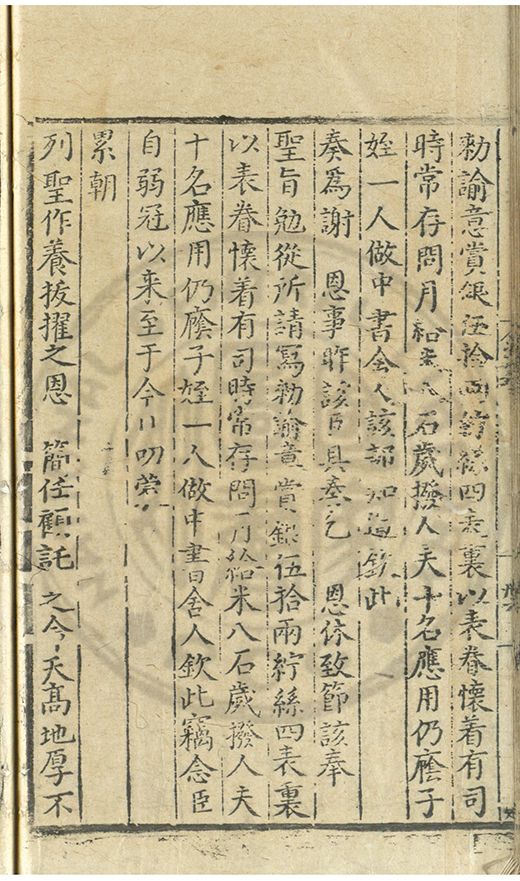 勑諭意賞銀伍拾兩紵絲四表裏以表眷懷着有司
時常存問月給米八石歲撥人夫十名應用仍廕子
姪一人做中書舍人該部知道欽此
奏爲謝 恩事昨該臣具奏乞 恩休致節該奉
聖旨勉從所請寫勑諭意賞銀伍拾兩紵絲四表裏
以表眷懷着有司時常存問月給米八石歲撥人夫
十名應用仍廕子姪一人做中書舍人欽此竊念臣
自弱冠以来至于今日叨蒙
累朝
列聖作養拔擢之恩 簡任顧託 之今天髙地厚不